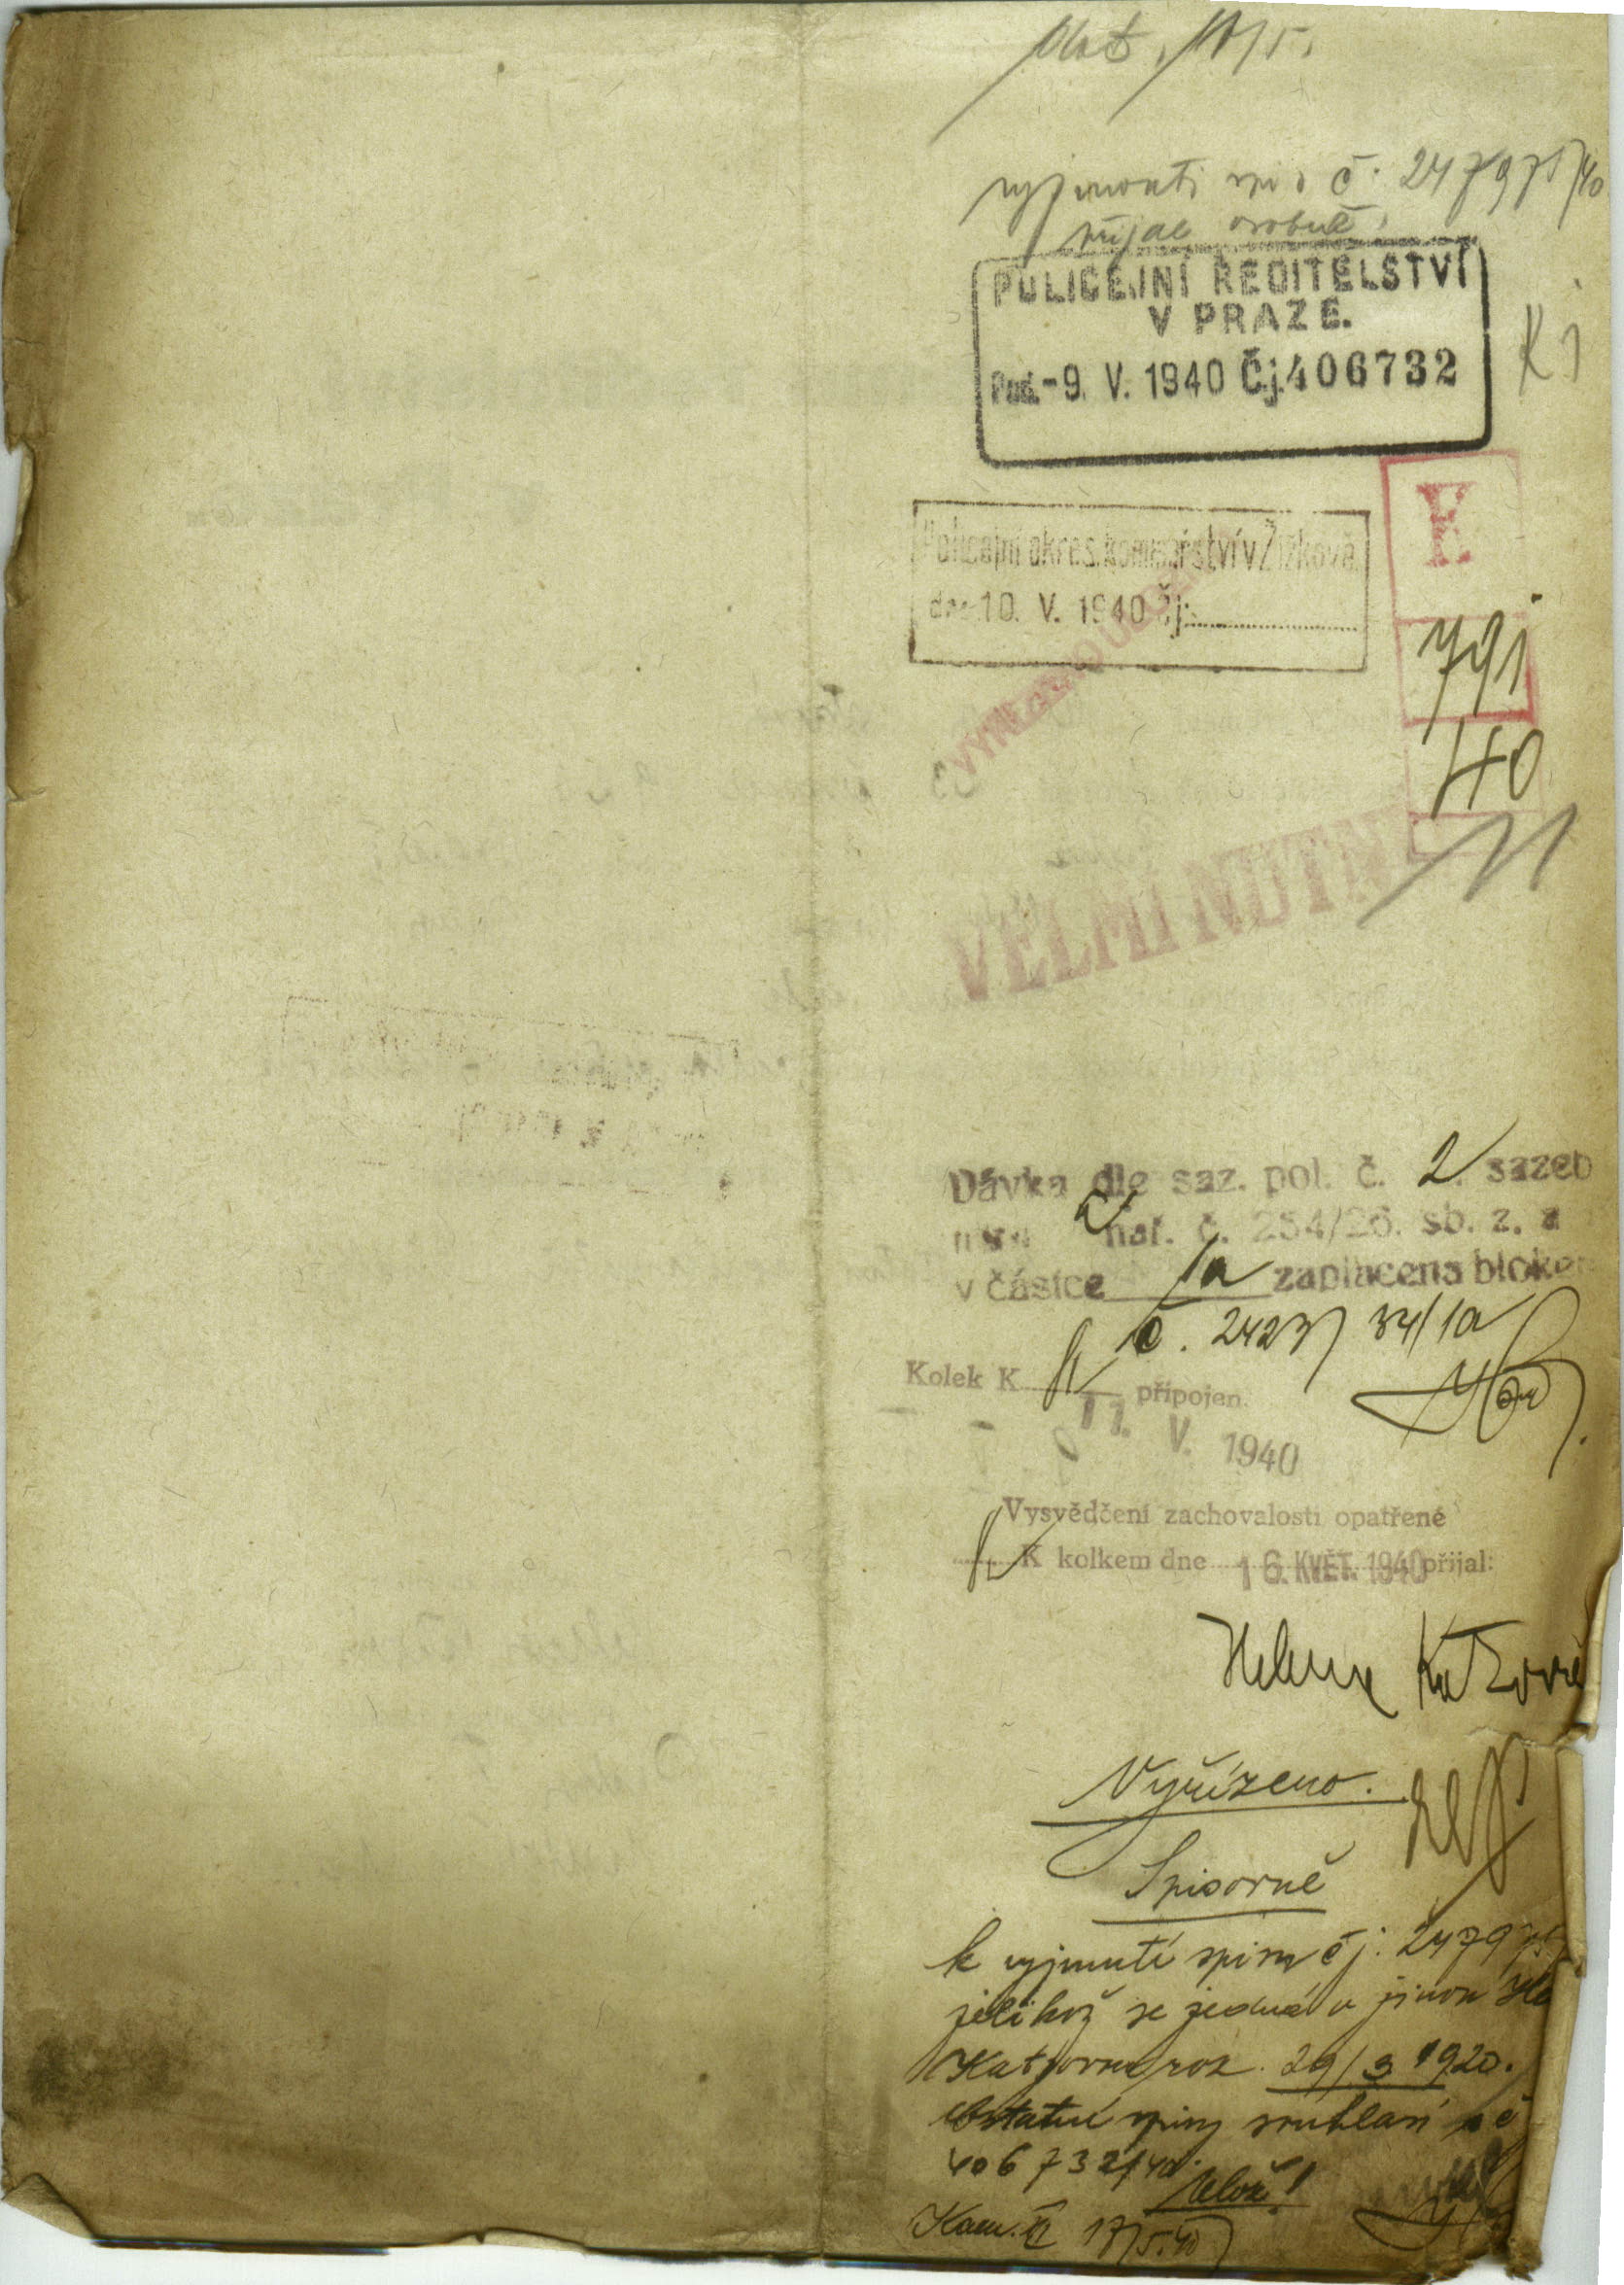 vyjmouti spis č. 247971/40
přijal osobně
POLICEJNÍ ŘEDITELSTVÍ
V PRAZE.
Pod. -9. V. 1940 Č.j. 406732
K
Policejní okres. komisařství v Žižkově
dne 10. V. 1940 čj:
E
791
40
VELMI NUTNÉ
Dávka dle saz. pol. č. 2 sazeb
nař. č. 254/26. sb. z. a
v částce zaplacena blokem
č. 2423 34/1a
Kolek K připojen.
11. V. 1940
Vysvědčení zachovalosti opatřené
K kolkem dne 16. KVĚT. 1940 přijal:
Helena Katzová
Vyřízeno.
Spisovně
k vyjmutí spisu čj: 24797
jelikož se jedná o jinou
Katzovu roz. 29/3 1920.
Ostatní spisy souhlasí s č
406732/40.
Ulož!
Kom. 17/5.40